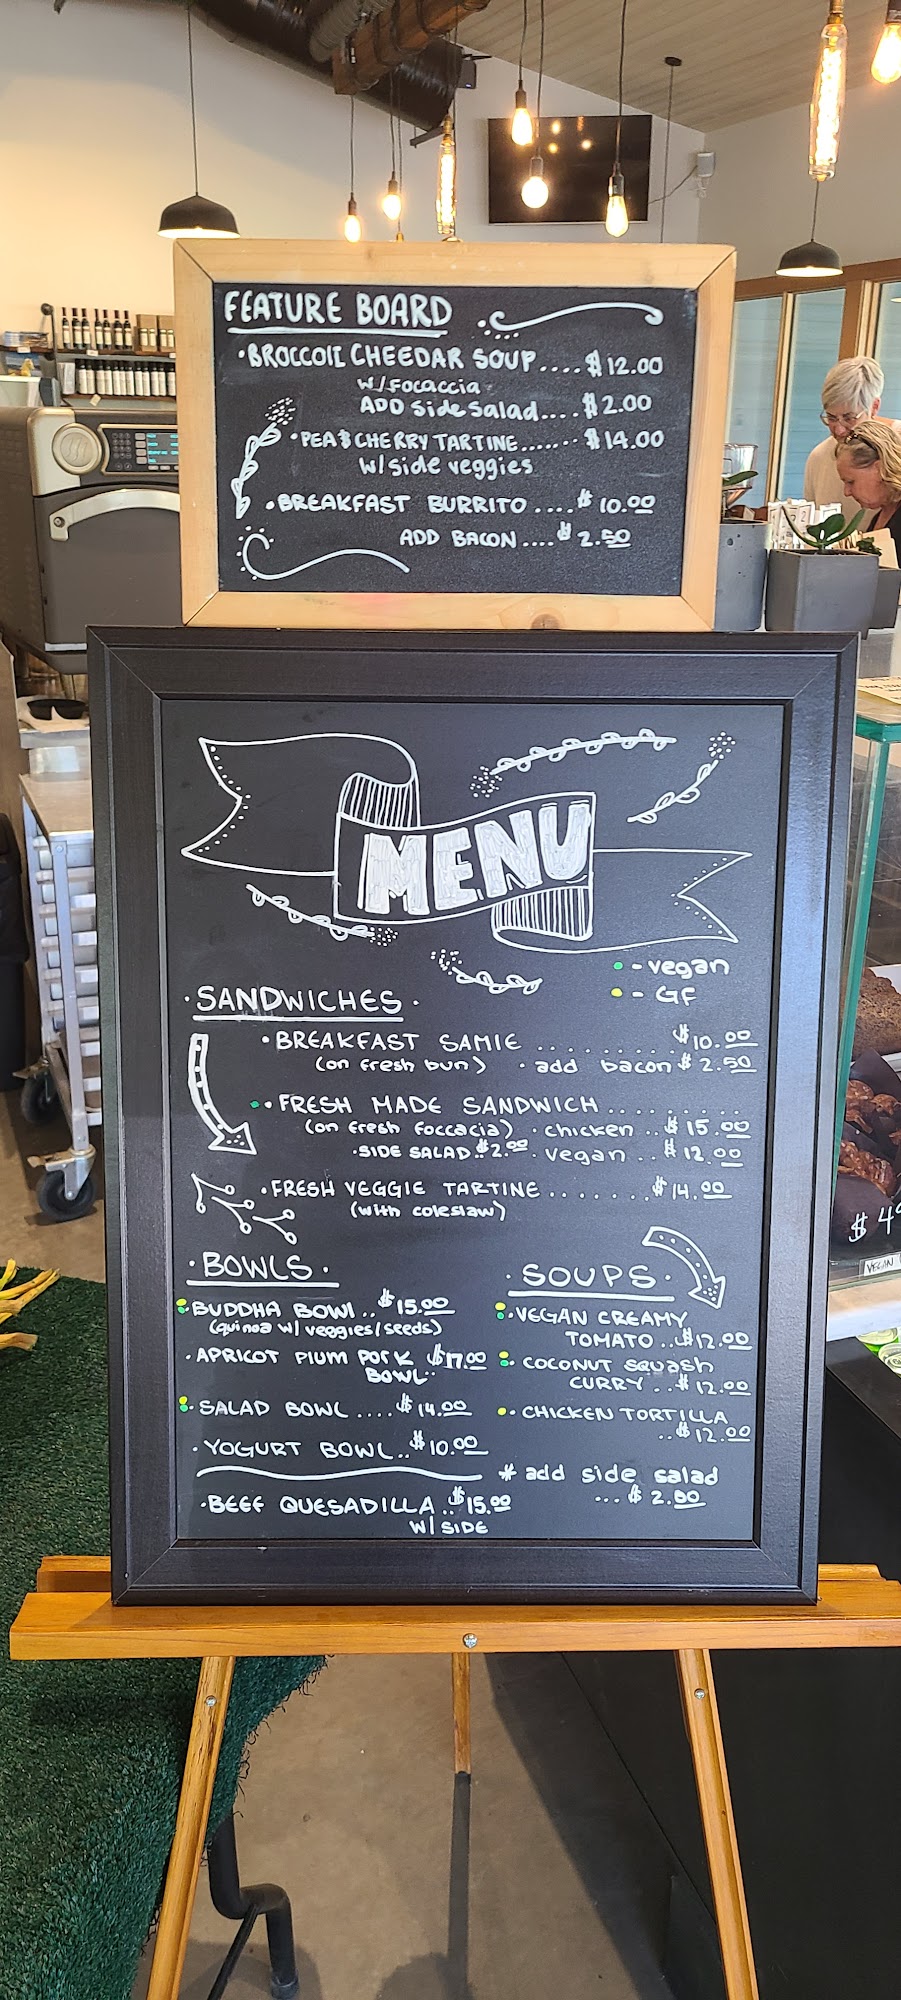 FEATURE BOARD
•BROCCOIL CHEEDAR SOUP....$12.00
W/Focaccia
ADD Side Salad....$2.00
•PEA & CHERRY TARTINE.......$14.00
w/side veggies
•BREAKFAST BURRITO ....$10.00
ADD BACON....$2.50
MENU
• - vegan
• - GF
•SANDWICHES•
•BREAKFAST SAMIE .........$10.00
(on fresh bun) • add bacon $2.50
•FRESH MADE SANDWICH..........
(on fresh foccacia) • chicken ..$15.00
•SIDE SALAD..$2.00 • vegan ..$12.00
•FRESH VEGGIE TARTINE .......$14.00
(with coleslaw)
•BOWLS•
•BUDDHA BOWl ..$15.00
(quinoa w/ veggies/seeds)
•APRICOT PlUM POrK $17.00
BOWL..
•SALAD BOWL ....$14.00
•YOGURT BOWL..$10.00
•BEEF QUESADILLA..$15.00
W/ SIDE
•SOUPS•
•VEGAN CREAMY
TOMATO ..$12.00
•COCONUT Squash
CURRY ..$12.00
•CHICKEN TORTILLA
..$12.00
* add side salad
...$2.00
$4
VEGAN